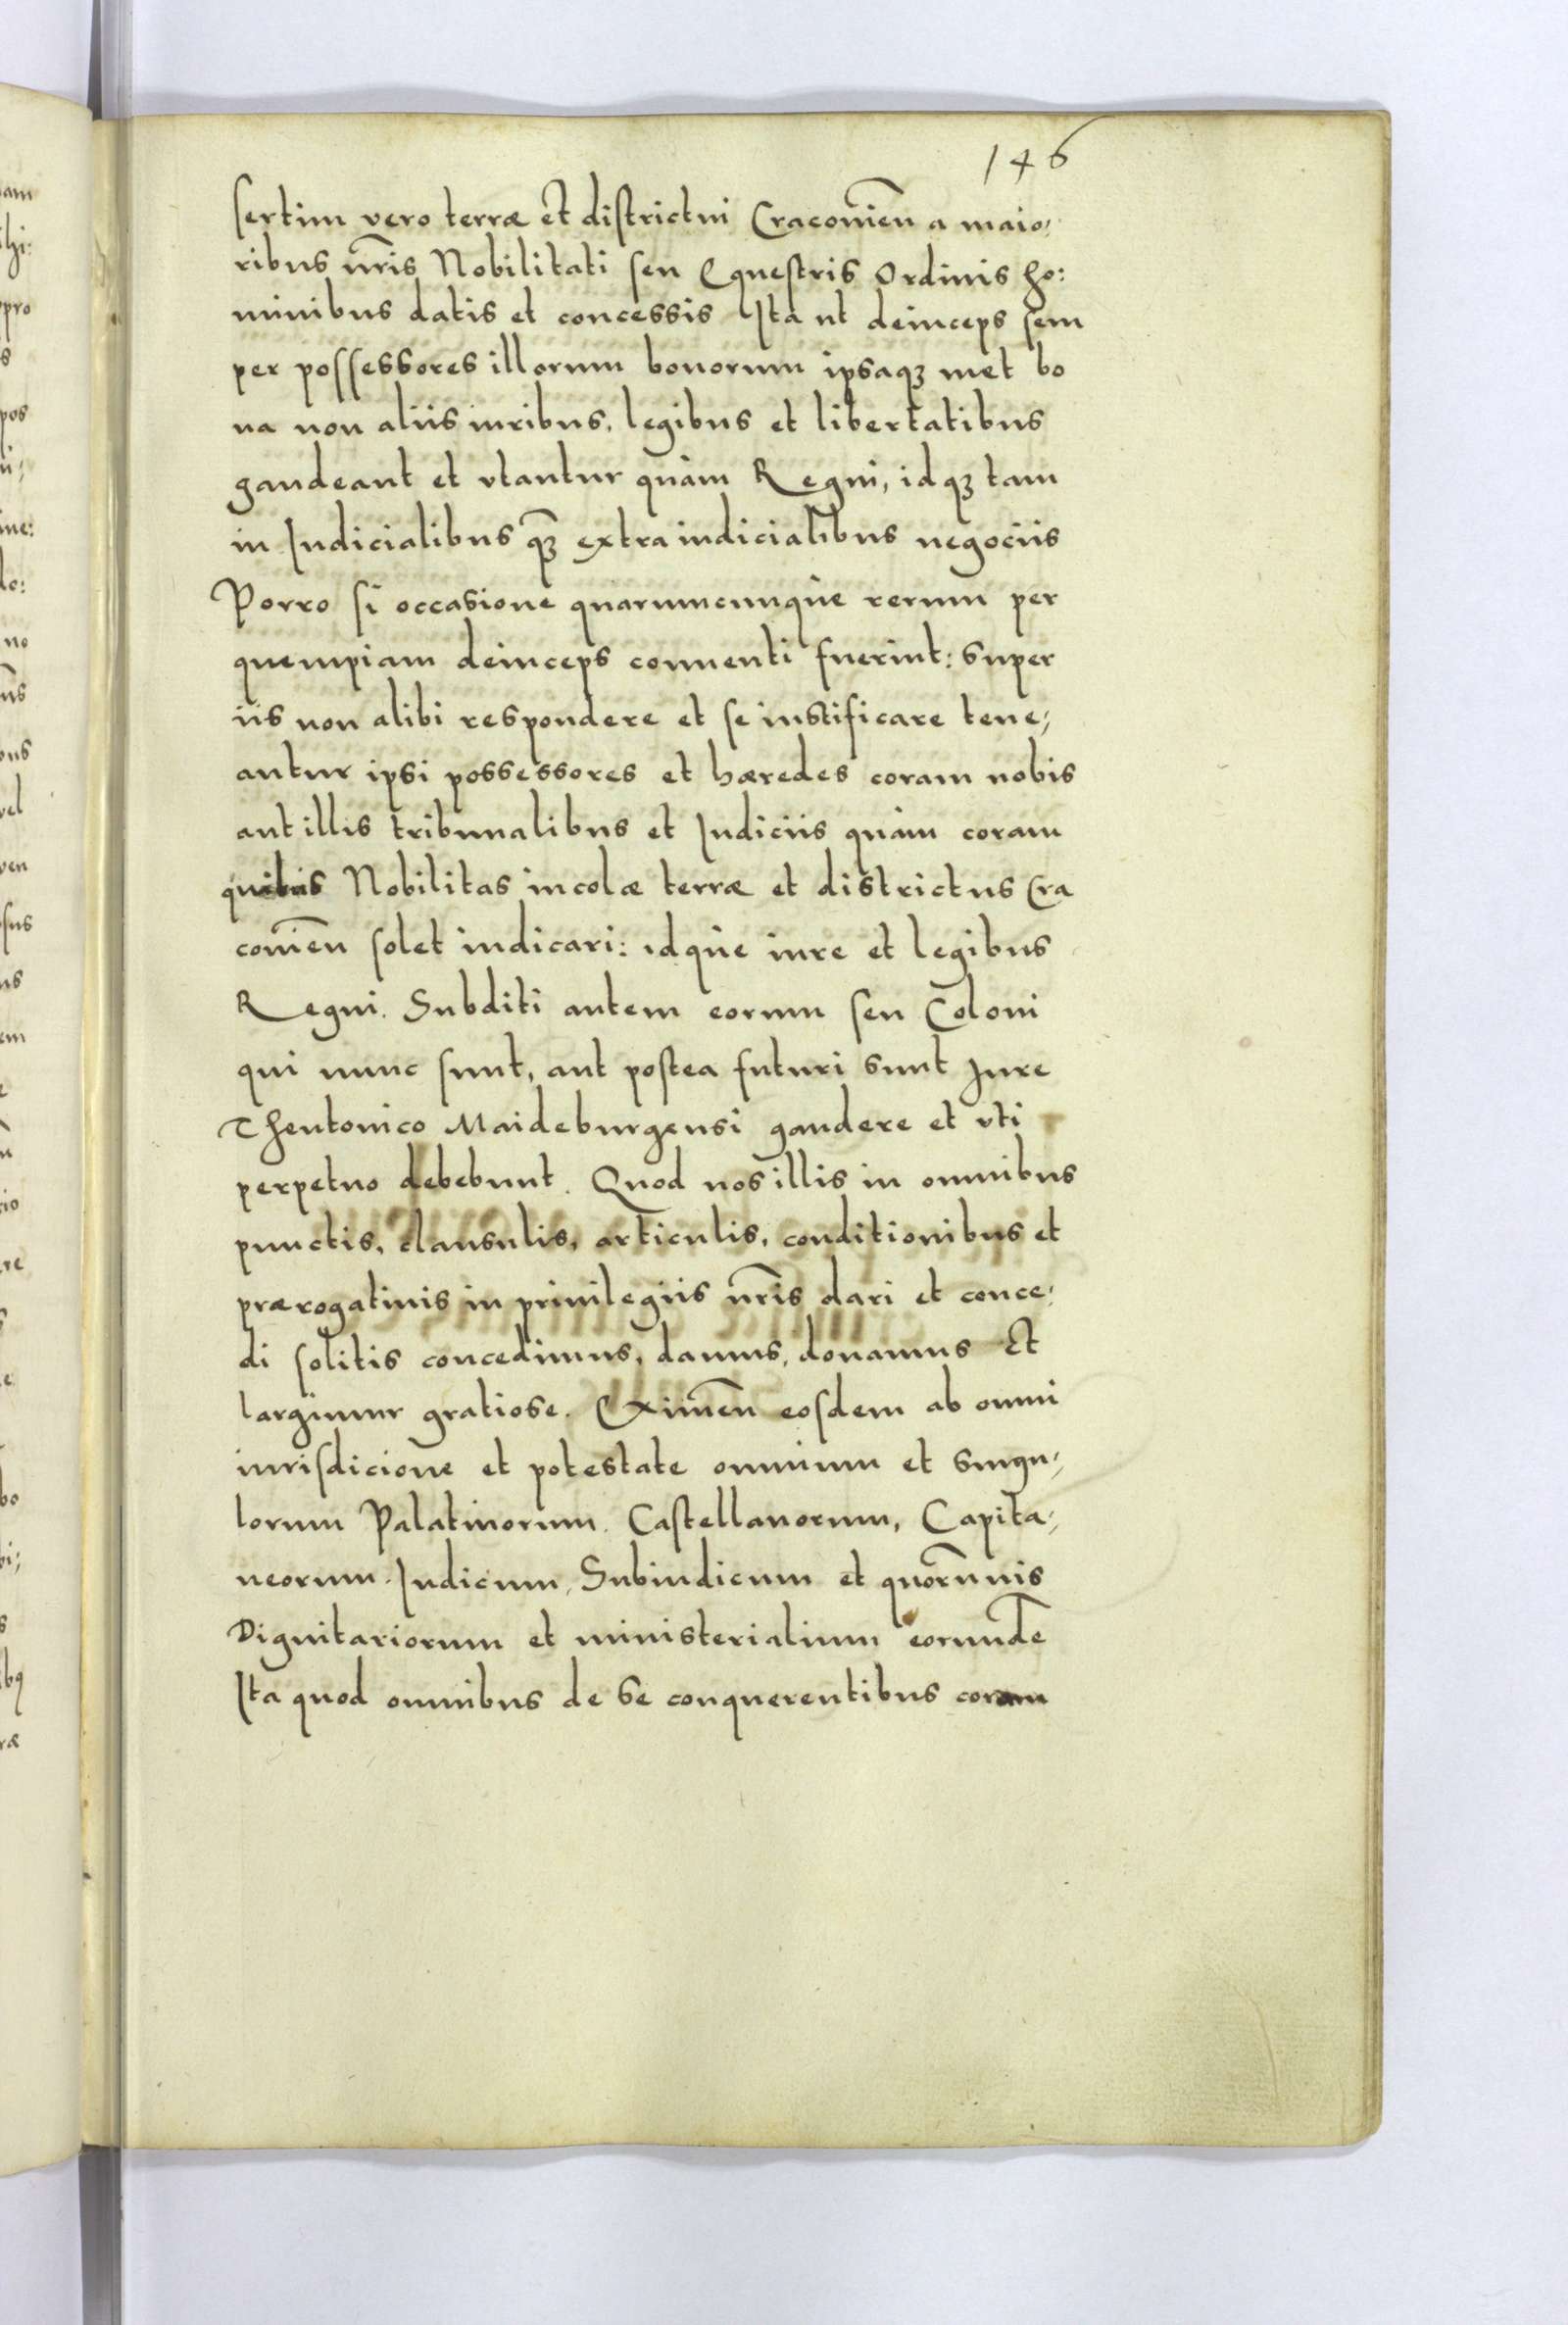 146
sertim vero terræ et districtui Cracouien̄ a maio,
ribus nr̄is Nobilitati seu Equestris Ordinis ho:
minibus datis et concessis Ita ut deinceps sem
per possessores illorum bonorum ipsaqꝫ met bo
na non aliis iuribus, legibus et libertatibus
gaudeant et vtantur quàm Regni, idqꝫ tam
in Iudicialibus qꝫ̄ extraiudicialibus negociis
Porro si occasione quarumcunque rerum per
quempiam deinceps conuenti fuerint: super
iis non alibi respondere et se iustificare tene,
antur ipsi possessores et hæredes coram nobis
aut illis tribunalibus et Iudiciis quàm coram
quibus Nobilitas incolæ terræ et districtus Cra
couien̄ solet iudicari: idque iure et legibus
Regni. Subditi autem eorum seu Coloni
qui nunc sunt, aut postea futuri sunt Iure
Theutonico Maideburgensi gaudere et vti
perpetuo debebunt. Quod nos illis in omnibus
punctis, clausulis, articulis, conditionibus et
prærogatiuis in priuilegiis nr̄is dari et conce,
di solitis concedimus, damus, donamus Et
largimur gratiose. Eximen̄ eosdem ab omni
iurisdicione et potestate omnium et singu,
lorum Palatinorum. Castellanorum, Capita,
neorum. Iudicum, Subiudicum et quorumuis
Dignitariorum et ministerialium eorundē
Ita quod omnibus de se conquerentibus coram